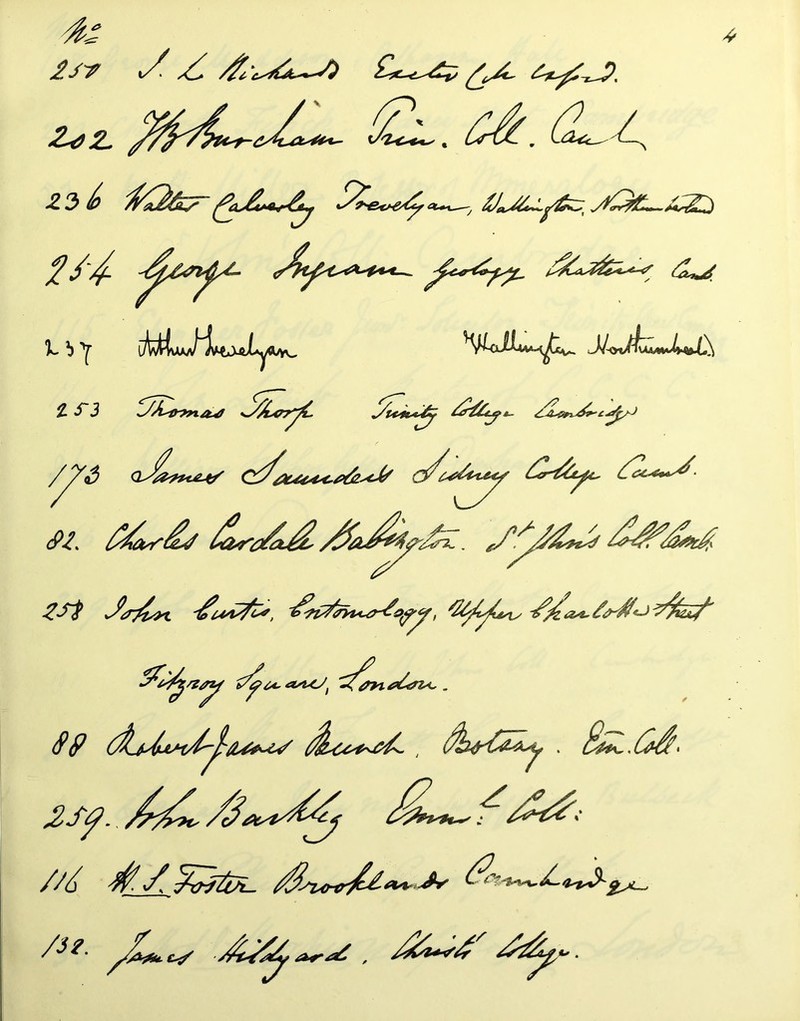 No 4
250 J. L. Richards Exeter Coll. Oxford.
202 Trin. Coll. Camb
236 Walter Calverley Trevelyan, Wallington, Northumberland
254 George Ingram Geology Chatteris, Camb.
237 Arthur Trevelyan Wallington Northumberland
253 Thomas Thorp Trinity College Cambridge
173 James Saunders Sidney College Camb.
82. Charles Cardale Babington. St John's Coll. Camb.
258 John Curtis, Entomology, Upper Charlotte Street
Fitzroy Square, London.
88 Robert James Bunch, Botany. Em. Coll.
259. John Barkley Emml Coll:
116 H. S. Foster Brooklands Cambridge
132. James Hildyard, Christs' College.